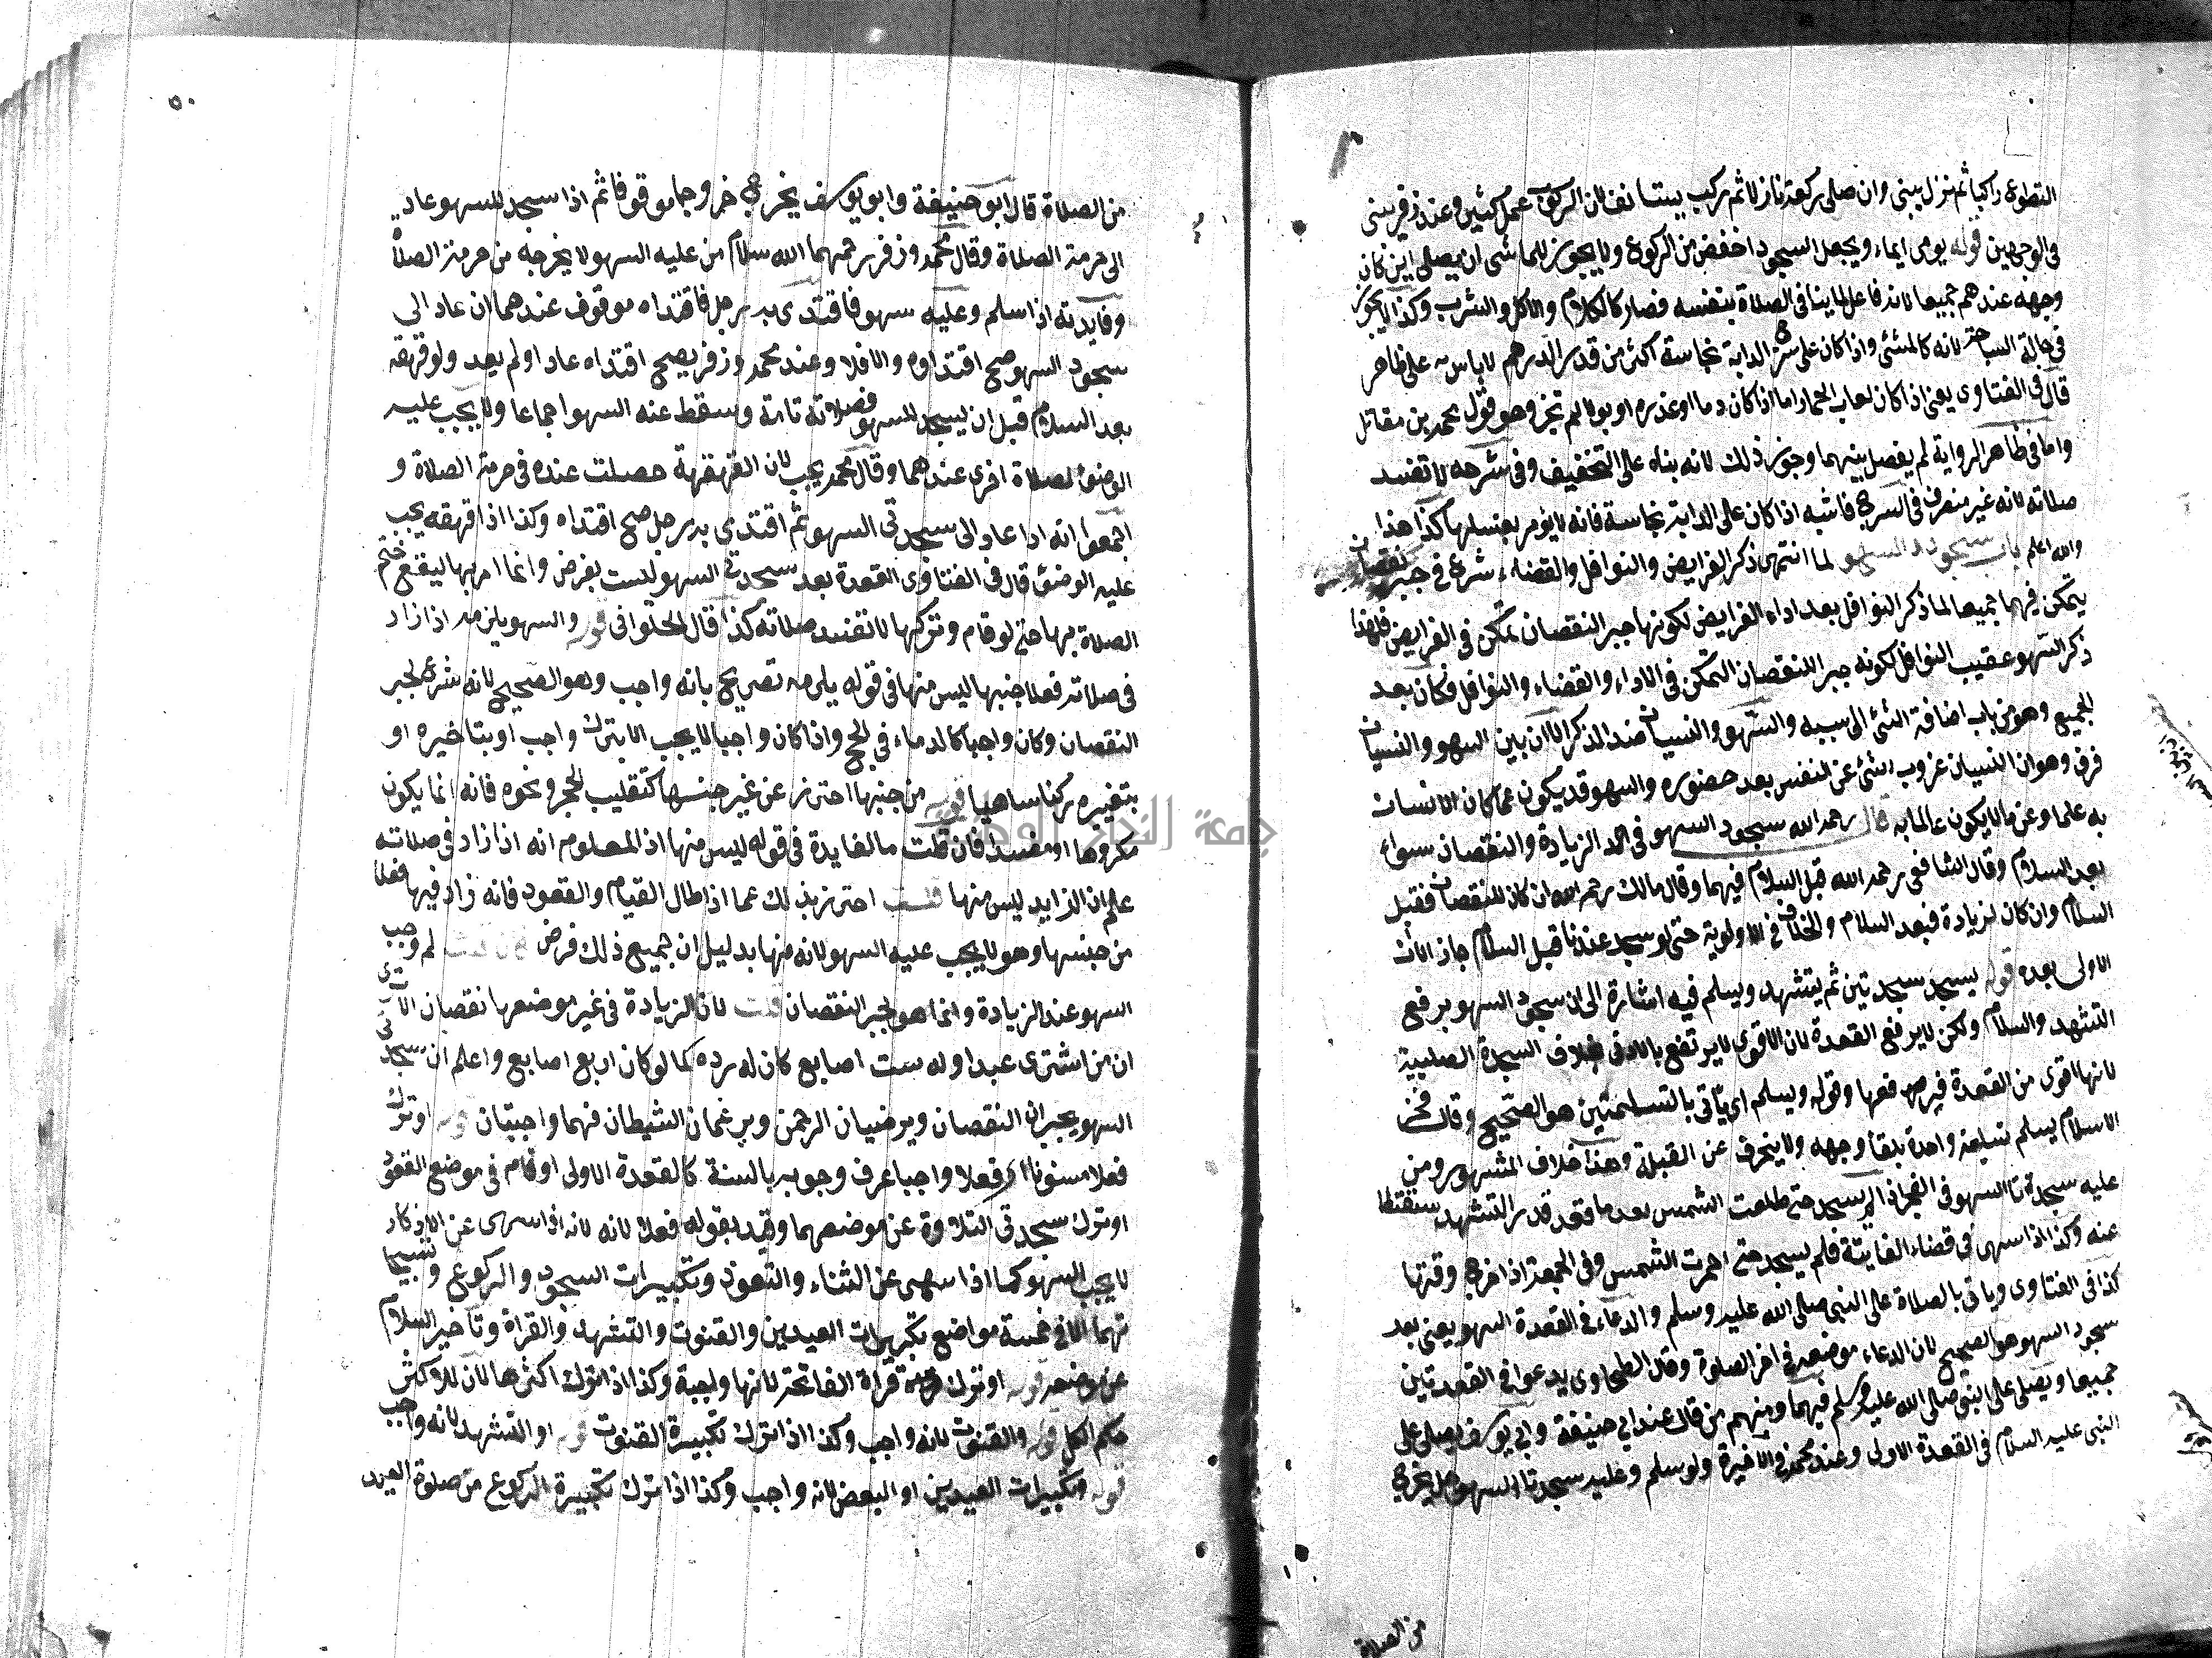 التطوع راكبا ثم نزل يبنى وان صلى ركعة نازلا ثم ركب يستانف لان الركوب عمل كثير وعند زفر يبنى
فى الوجهين قوله يومى ايماء ويجعل السجود اخفض من الركوع ولا يجوز للماشى ان يصلى اين كان
وجهه عندهم جميعا لانه فاعل لما ينافى الصلاة بنفسه فصار كالكلام والاكل والشرب وكذا لا يجوز
فى حالة السباحة لانه كالمشى واذا كان على سرج الدابة نجاسة اكثر من قدر الدرهم لا باس به على ظاهر
قال فى الفتاوى يعنى اذا كان لعاب الحمار اما اذا كان دما او عذره او بولا لم تجز وهو قول محمد بن مقاتل
واما فى ظاهر الرواية لم يفصل بينهما وجوز ذلك لانه بناه على التخفيف وفى شرحه لا تفسد
صلاته لانه غير متصرف فى السرج فاشبه اذا كان على الدابة نجاسة فانه لا يومر بغسلها كذا هذا
والله اعلم باب سجود السهو لما انتهى ذكر الفرايض والنوافل والقضاء شرع فى جبر نقصان
يتمكن فيهما جميعا لما ذكر النوافل بعد اداء الفرايض لكونها جبر النقصان تمكن فى الفرايض فلهذا
ذكر السهو عقيب النوافل لكونه جبر النقصان المتمكن فى الاداء والقضاء والنوافل فكان بعد
الجميع وهو من باب اضافة الشئ الى سببه والسهو والنسيان ضد الذكر الا ان بين السهو والنسيان
فرق وهو ان النسيان عزوب الشئ عن النفس بعد حضوره والسهو قد يكون عما كان الانسان
به عالما وعن ما لا يكون عالما به قال رحمه الله سجود السهو فى الزيادة والنقصان سواء
بعد السلام وقال الشافعى رحمه الله قبل السلام فيهما وقال مالك رحمه الله ان كان للنقصان فقبل
السلام وان كان لزيادة فبعد السلام والخلاف فى الاولوية حتى لو سجد عندنا قبل السلام جاز الا ان
الاولى بعده قوله يسجد سجدتين ثم يتشهد ويسلم فيه اشارة الى ان سجود السهو يرفع
التشهد والسلام ولكن لا يرفع القعدة لان الاقوى لا يرتفع بالادنى بخلاف السجدة الصلبية
لانها اقوى من القعدة فيرفعها وقوله ويسلم اى ياتى بالتسليمتين هو الصحيح وقال فخر
الاسلام يسلم تسليمة واحدة تلقا وجهه ولا ينحرف عن القبلة وهذا خلاف المشهور ومن
عليه سجدتا السهو فى الفجر اذا لم يسجد حتى طلعت الشمس بعد ما قعد قدر التشهد سقطتا
عنه وكذا اذا سهى فى قضاء الفايتة فلم يسجد حتى احمرت الشمس وفى الجمعة اذا خرج وقتها
كذا فى الفتاوى وياتى بالصلاة على النبى صلى الله عليه وسلم والدعاء فى القعدة السهو يعنى بعد
سجود السهو هو الصحيح لان الدعاء موضعه فى اخر الصلوة وقال الطحاوى يدعو فى القعدتين
جميعا ويصلى على النبى صلى الله عليه وسلم فيهما ومنهم من قال عند ابى حنيفة وابى يوسف يصلى على
النبى عليه السلام فى القعدة الاولى وعند محمد فى الاخيرة ولو سلم وعليه سجدتا السهو هل يخرج
من الصلاة
٥٠
من الصلاة قال ابو حنيفة وابو يوسف يخرج خروجا موقوفا ثم اذا سجد للسهو عاد
الى حرمة الصلاة وقال محمد وزفر رحمهما الله سلام من عليه السهو لا يخرجه من حرمة الصلاة
وفايدته اذا سلم وعليه سهو فاقتدى به رجل فاقتداه موقوف عندهما ان عاد الى
سجود السهو صح اقتداوه والا فلا وعند محمد وزفر يصح اقتداه عاد او لم يعد ولو قهقه
بعد السلام قبل ان يسجد للسهو فصلاته تامة وسقط عنه السهو اجماعا ولا يجب عليه
الوضوء لصلاة اخرى عندهما وقال محمد يجب لان القهقهة حصلت عنده فى حرمة الصلاة و
اجمعوا انه اذا عاد الى سجدتى السهو ثم اقتدى به رجل صح اقتداه وكذا اذا قهقه يجب
عليه الوضوء قال فى الفتاوى القعدة بعد سجدتى السهو ليست بفرض وانما امر بها ليقع ختم
الصلاة بها حتى لو قام وتركها لا تفسد صلاته كذا قال الحلوانى قوله والسهو يلزمه اذا زاد
فى صلاته فعلا من جنسها ليس منها فى قوله يلزمه تصريح بانه واجب وهو الصحيح لانه شرع لجبر
النقصان وكان واجبا كالدماء فى الحج واذا كان واجبا لا يجب الا بترك واجب او بتاخيره او
بتغيره ركنا ساهيا قوله من جنسها احترز عن غير جنسها كتقليب الحجر ونحوه فانه انما يكون
مكروها او مفسدا فان قلت ما الفايدة فى قوله ليس منها اذ المعلوم انه اذا زاد فى صلاته
علم ان الزايد ليس منها قلت احترز بذلك عما اذا طال القيام والقعود فانه زاد فيها فعلا
من جنسها وهو لا يجب عليه السهو لانه منها بدليل ان جميع ذلك فرض فان قلت لم وجب
السهو عند الزيادة وانما هو لجبر النقصان قلت لان الزيادة فى غير موضعها نقصان الا ترى
ان من اشترى عبدا وله ست اصابع كان له رده كما لو كان اربع اصابع واعلم ان سجدتى
السهو يجبران النقصان ويرضيان الرحمن ويرغمان الشيطان فهما واجبتان قوله او ترك
فعلا مسنونا اى فعلا واجبا عرف وجوبه بالسنة كالقعدة الاولى او قام فى موضع القعود
او ترك سجدتى التلاوة عن موضعهما وقيد بقوله فعلا لانه لانه اذا سهى عن الاذكار
لا يجب السهو كما اذا سهى عن الثناء والتعوذ وتكبيرات السجود والركوع وتسبيحا
تهما الا فى خمسة مواضع تكبيرات العيدين والقنوت والتشهد والقراة وتاخير السلام
عن موضعه قوله او ترك قراة الفاتحة لانها واجبة وكذا اذا ترك اكثرها لان للاكثر
حكم الكل قوله والقنوت لانه واجب وكذا اذا ترك تكبيرة القنوت قوله او التشهد لانه واجب
قوله وتكبيرات العيدين او البعض لانه واجب وكذا اذا ترك تكبيرة الركوع من صلوة العيد
جامعة النجاح الوطنية